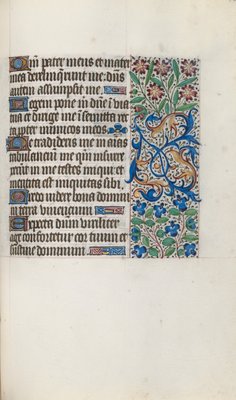 Qm̄ pater meus et mater
mea dereliquerūt me: dn̄s
autem assumpsit me.
Legem pone m̄ dn̄e ī via
tua et dirige me ī semita rec
ta ꝓpter inimicos meos.
Ne tradideris me in aīas
tribulanciū me qm̄ insurre
xerūt in me testes iniqui et
mentita est iniquitas sibi.
Credo videre bona domini
in terra viuencium.
Expecta dn̄m viriliter
age confortetur cor tuum et
sustine dominum.